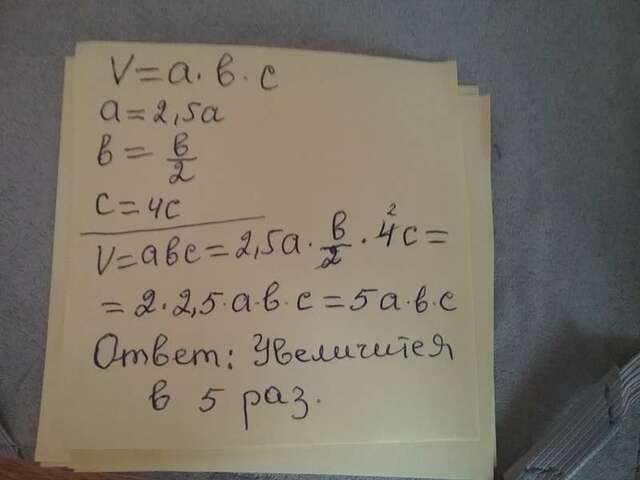 V = a · в · c
a = 2,5a
в = в/2
c = 4c
V = aвc = 2,5a · в/2 · 4² c =
= 2 · 2,5 · a · в · c = 5a · в · c
Ответ: Увеличится
в 5 раз.